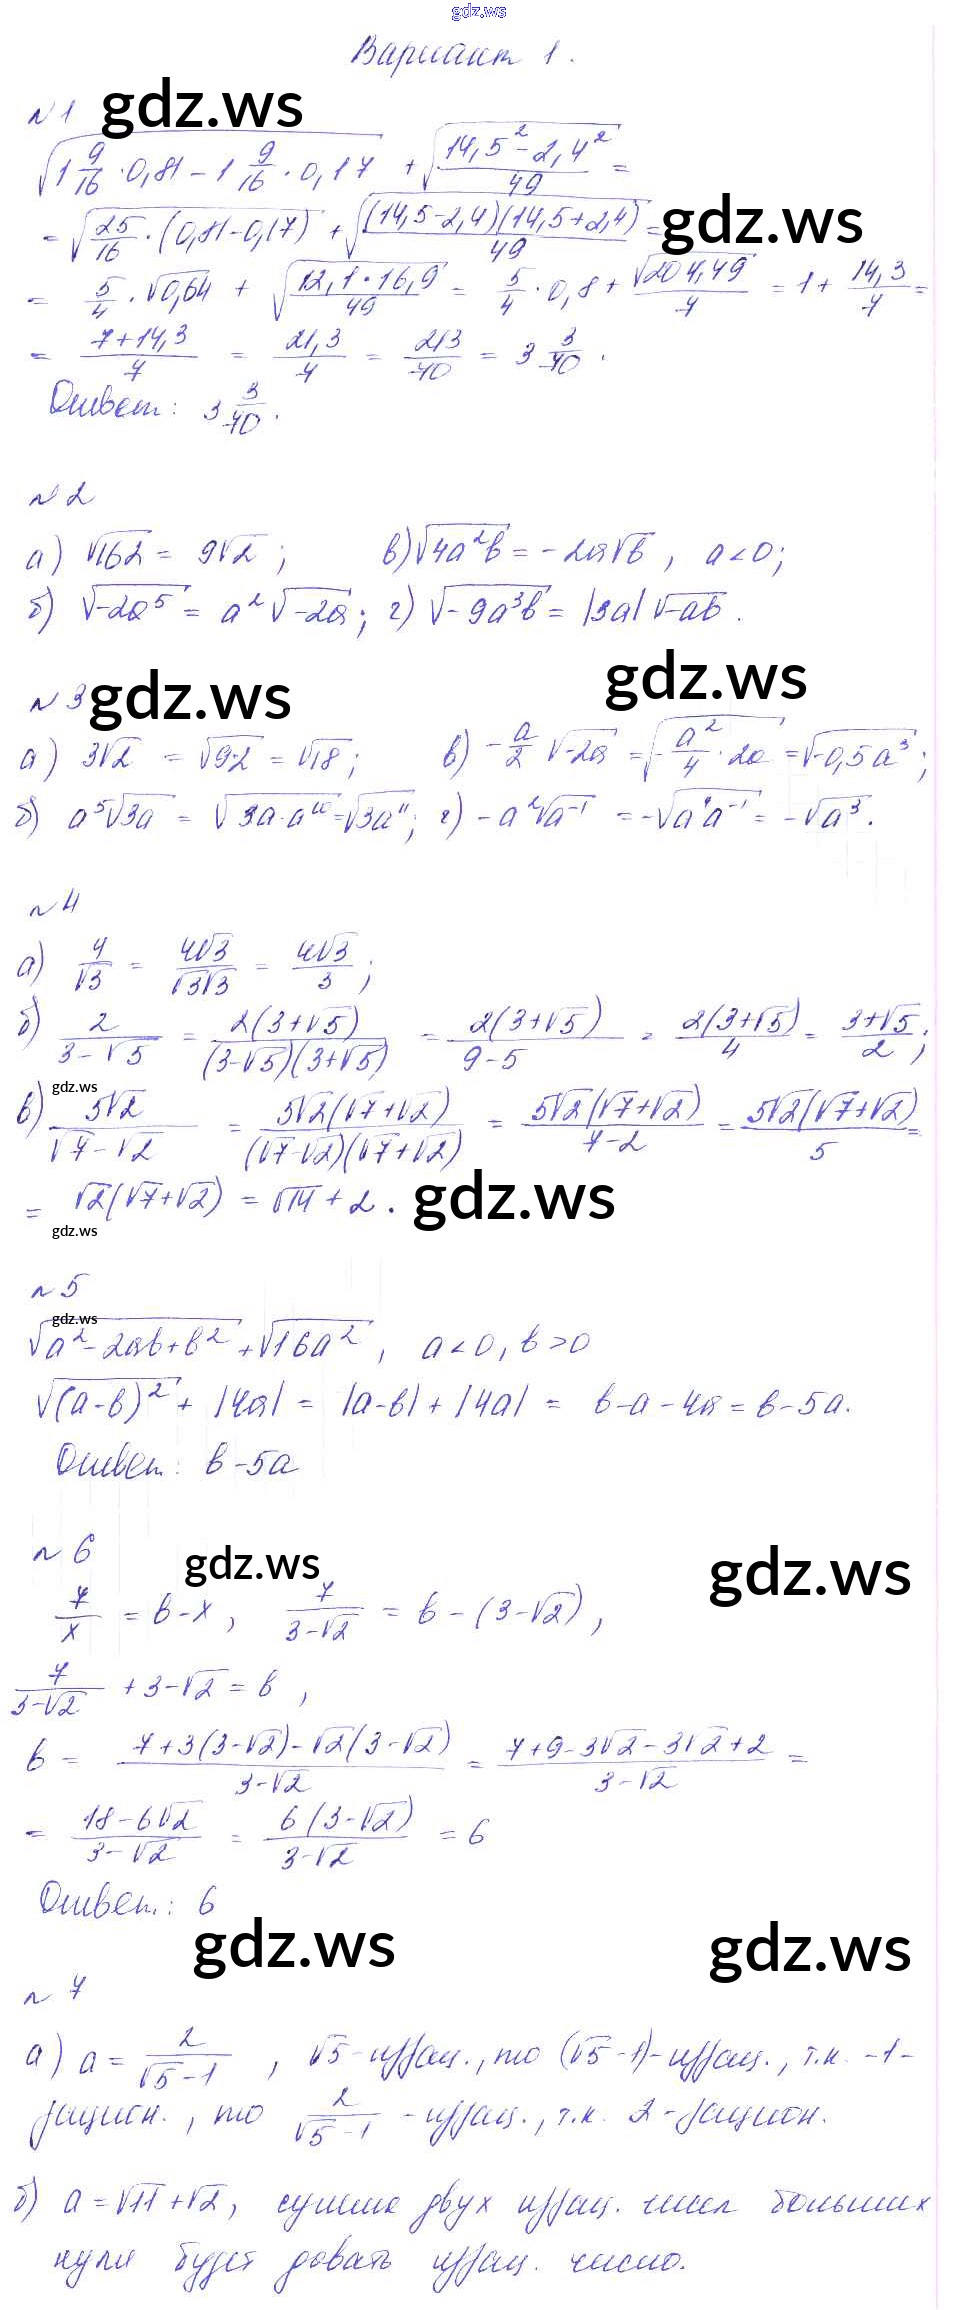 gdz.ws
Вариант 1.
№1 gdz.ws
√(1 9/16 · 0,81 - 1 9/16 · 0,17) + √((14,5² - 2,4²)/49) =
= √(25/16 · (0,81-0,17)) + √((14,5-2,4)(14,5+2,4)/49) = gdz.ws
= 5/4 · √0,64 + √(12,1·16,9/49) = 5/4 · 0,8 + √204,49/7 = 1 + 14,3/7 =
= (7+14,3)/7 = 21,3/7 = 213/70 = 3 3/70 .
Ответ: 3 3/70 .
№2
а) √162 = 9√2 ; в) √(4a²b) = -2a√b , a<0;
б) √(-2a⁵) = a²√(-2a) ; г) √(-9a³b) = |3a|√(-ab) .
№3 gdz.ws gdz.ws
а) 3√2 = √(9·2) = √18 ; в) -a/2 √(-2a) = √(-a²/4 · 2a) = √(-0,5a³) ;
б) a⁵√(3a) = √(3a·a¹⁰) = √(3a¹¹) ; г) -a²√(a⁻¹) = -√(a⁴a⁻¹) = -√(a³) .
№4
а) 4/√3 = 4√3/(√3√3) = 4√3/3 ;
б) 2/(3-√5) = 2(3+√5)/((3-√5)(3+√5)) = 2(3+√5)/(9-5) = 2(3+√5)/4 = (3+√5)/2 ;
gdz.ws
в) 5√2/(√7-√2) = 5√2(√7+√2)/((√7-√2)(√7+√2)) = 5√2(√7+√2)/(7-2) = 5√2(√7+√2)/5 =
= √2(√7+√2) = √14 + 2 . gdz.ws
gdz.ws
№5
gdz.ws
√(a²-2ab+b²) + √(16a²) , a<0, b>0
√((a-b)²) + |4a| = |a-b| + |4a| = b-a-4a = b-5a.
Ответ: b-5a
№6 gdz.ws gdz.ws
7/x = b-x , 7/(3-√2) = b-(3-√2) ,
7/(3-√2) + 3-√2 = b ,
b = (7+3(3-√2)-√2(3-√2))/(3-√2) = (7+9-3√2-3√2+2)/(3-√2) =
= (18-6√2)/(3-√2) = 6(3-√2)/(3-√2) = 6
Ответ: 6
gdz.ws gdz.ws
№7
а) a = 2/(√5-1) , √5-иррац., то (√5-1)-иррац., т.к. -1-
рацион., то 2/(√5-1) -иррац., т.к. 2-рацион.
б) a=√11+√2, сумма двух иррац. чисел больших
нуля будет довать иррац. число.